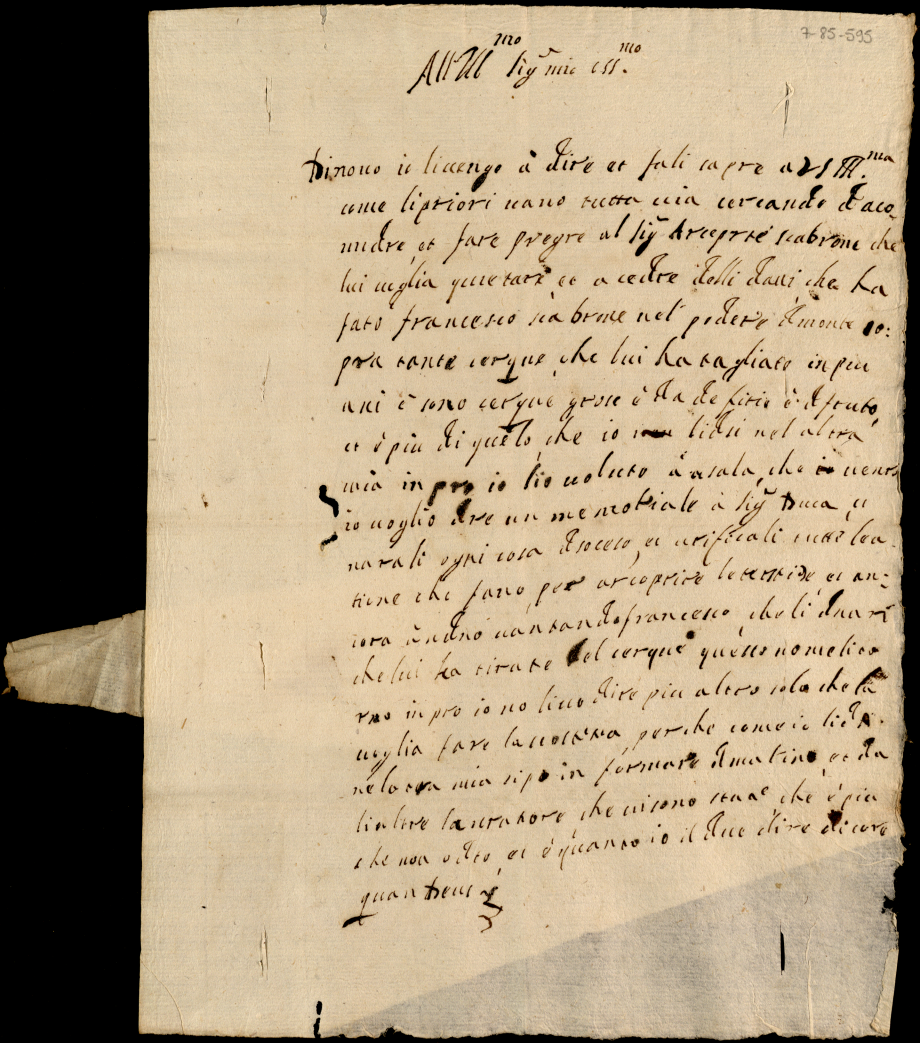 7-85-595
All Ill^mo Sig^r mio oss^mo.
Di novo io li vengo à dire et fali sapre a VS Ill.^ma
come li priori vano tutta via cercando d aco
mudre et fare pregre al Sig^r Arceprte scabrone che
lui voglia quietare et a cedre delli dani che ha
fato francesco scabrone nel podere d monte so:
pra tante cerque che lui ha tagliate in piu
ani è sono cerque grose è da defitio è d fruto,
et è piu di quelo che io li disi nel altra
mia in pro io lio voluto che io
io voglio dre un memoriale à Sig^r Duca
narali ogni cosa et verificali tutte
tione che fano per arcoprire et an:
cora vantando francesco che li dnari
che lui ha tirate del cerque questo no
rno in pro io no li vo dire piu altro solo che la
voglia fare la nostra perche come io li disi
nelatra mia si po in formare d matino et da
li altre lavratore che vi sono state che è piu
che non odito, et è quanto io il deve dire di core
quan Deus